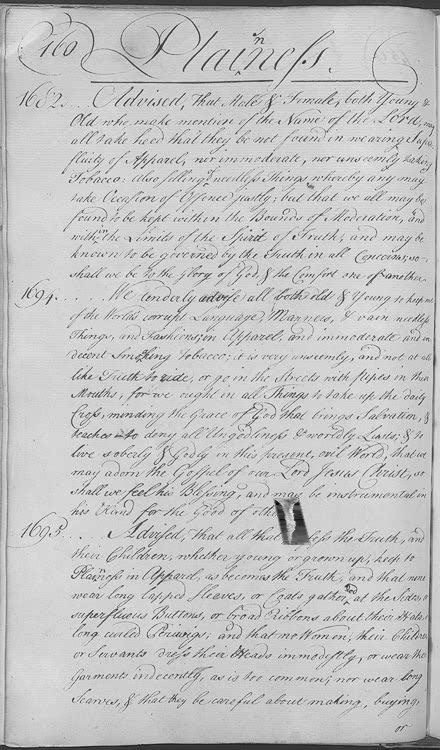 160 Plainness.
1682... Advised, that Male & Female, both Young &
Old who make mention of the Name of the Lord, may
all take heed that they be not found in wearing Supr
fluity of Apparel, nor immoderate, nor unseemly taking
Tobacco: Also selling needless Things whereby any may
take Occasion of Offence justly; but that we all may be
found to be kept within the Bounds of Moderation, and
within the Limits of the Spirit of Truth; and may be
known to be governed by the Truth in all Concerns, so
shall we be to the Glory of God, & the Comfort one of another.
1694.... We tenderly advise all both old & Young to keep out
of the World's corrupt Language, Manners, & vain needless
Things, and Fashions, in Apparel; and immoderate and in
decent Smoking Tobacco; it is very unseemly, and not at all
like Truth to ride, or go in the Streets with pipes in their
Mouths; for we ought in all Things to take up the daily
Cross, minding the Grace of God that brings Salvation, &
teaches to deny all Ungodliness & worldly Lusts; & to
live soberly & Godly in this present, evil World, that we
may adorn the Gospel of our Lord Jesus Christ, so
shall we feel his Blessing, and may be instrumental in
his Hand for the Good of
1695... Advised, that all that the Truth, and
their Children, whether young or grown up, keep to
Plainness in Apparel, as becomes the Truth, and that none
wear long lapped Sleeves, or Coats gathered at the Sides, or
superfluous Buttons, or broad Ribbons about their Hats, or
long curled Periwigs; and that no Women, their Children
or Servants dress their Heads immodestly, or wear their
Garments indecently, as is too common; nor wear long
Scarves, & that they be careful about making, buying,
or